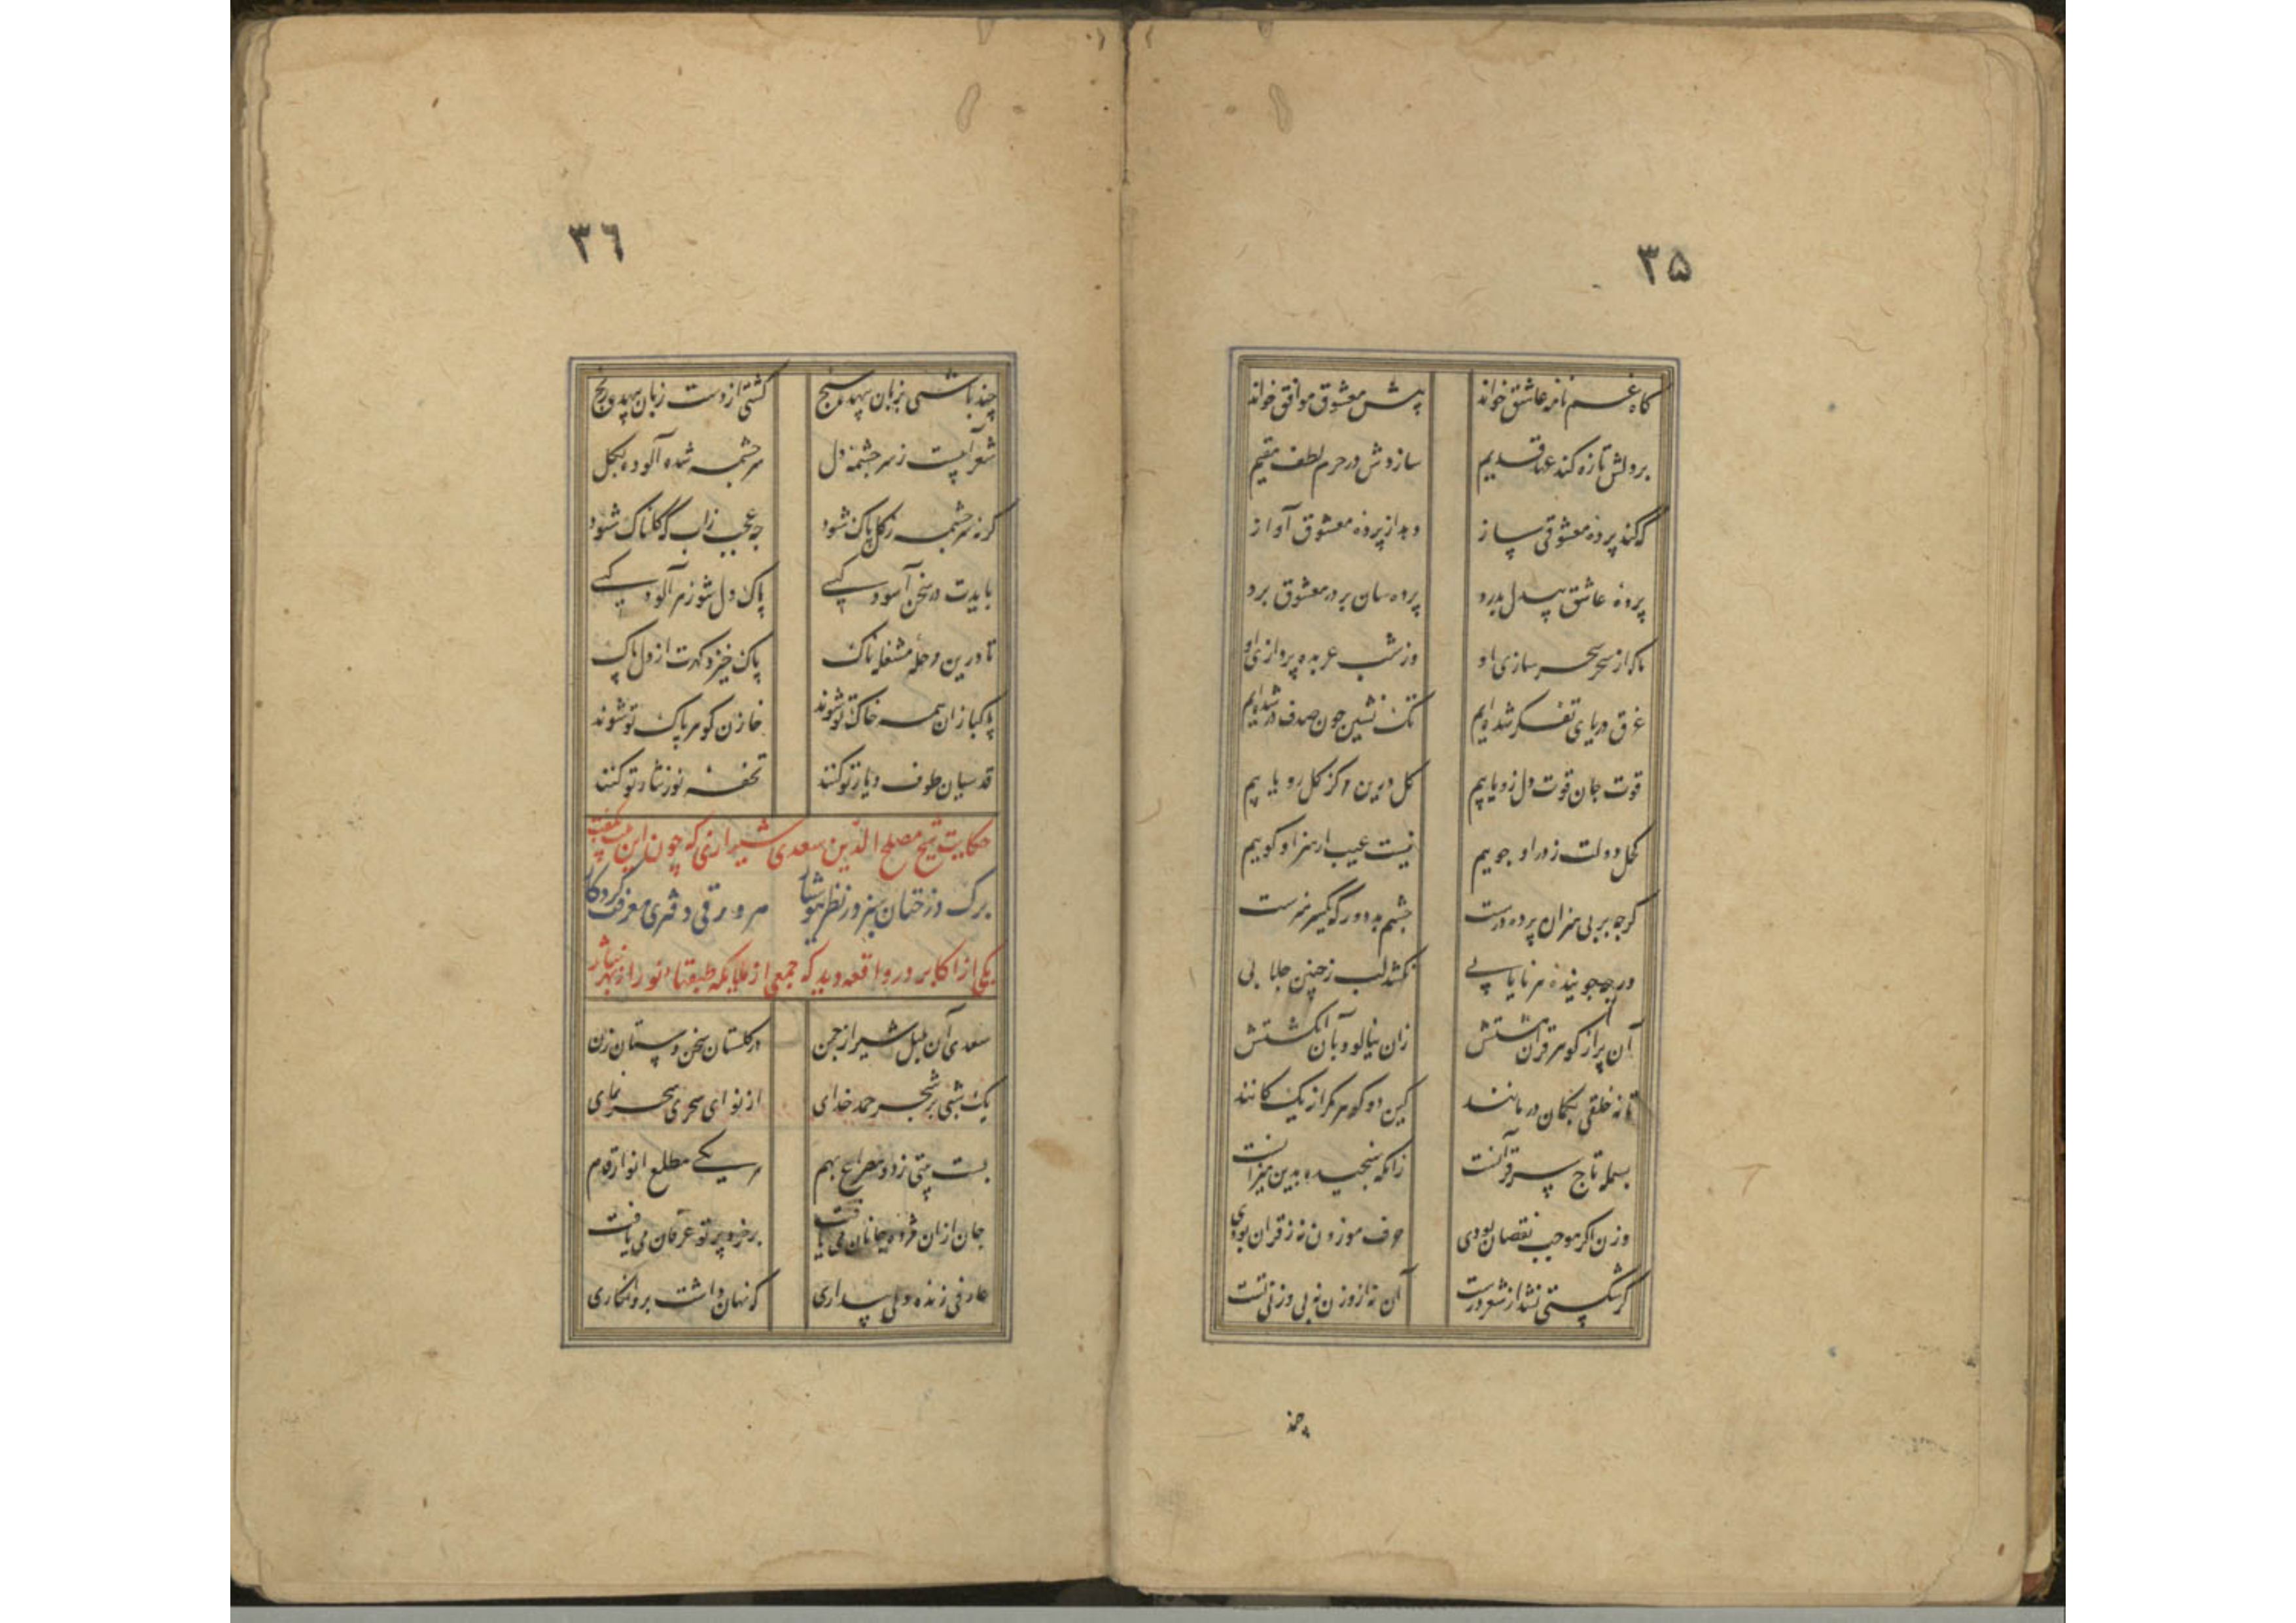 ۳۵
کاه غم نامه عاشق خواند پیش معشوق موافق خواند
بر دلش تازه کند عهد قدیم سازدش در حرم لطف مقیم
که کند پرده معشوقی ساز وبد از پرده معشوق آواز
پرده عاشق بیدل بدرد پرده سان بر در معشوق برد
ماکه از سحر سحر سازی او وز شب عربده پردازی او
غرق دریای تفکر شده ایم تک نشین چون صدف در شده ایم
قوت جان قوت دل زو یابیم کل درین کز کل رو یابیم
کحل دولت ز در او جوییم نیست عیب ار هنر او کوییم
کرچه بر بی هنران پرده درست چشم بد دور که یکسر هنرست
درجه جوینده هر نایابی نکشد لب ز چنین جلابی
آن پر از کوهر قران مشتش زان نیالود بآن انکشتش
تا نه خلقی بکمان در مانند کین دو کوهر مکر از یک کانند
بسمله تاج سر قرآنست زانکه سنجیده بدین میزانست
وزن اکر موجب نقصان بودی حرف موزون نه ز قران بودی
کر شکستی نشد از شعر درست آن نه از وزن ز بی وزنی تست
چند
۳٦
چند باشی بزبان بیهده سنج کشتی از دست زبان بیهده رنج
شعر آبیست ز سرچشمه دل سرچشمه شده آلوده بکل
کرنه سرچشمه ز کل پاک شود چه عجب زاب که کلناک شود
بایدت در سخن آسوده کیی پاک دل شو ز هر آلوده کیی
تا درین وحله مشغله ناک پاک خیزد کهرت از دل پاک
پاکبازان همه خاک تو شوند خازن کوهر پاک تو شوند
قدسیان طوف دیار تو کنند تحفه نور نثار تو کنند
حکایت شیخ مصلح الدین سعدی شیرازی که چون این بیت بگفت
برک درختان سبز در نظر هوشیار هر ورقی دفتری معرفت کردکار
یکی از اکابر در واقعه دید که جمعی از ملایکه طبقهاء نور از بهر نثار
سعدی آن بلبل شیراز چمن در کلستان سخن دستان زن
یک شبی بر شجر حمد خدای از نوای سحری سحر نمای
بست بیتی ز دو مصراع بهم هر یکی مطلع انوار قدم
جان ازان مژده جانان می یافت بر خرد پرتو عرفان می یافت
عارفی زنده دلی بیداری که نهان داشت برو انکاری